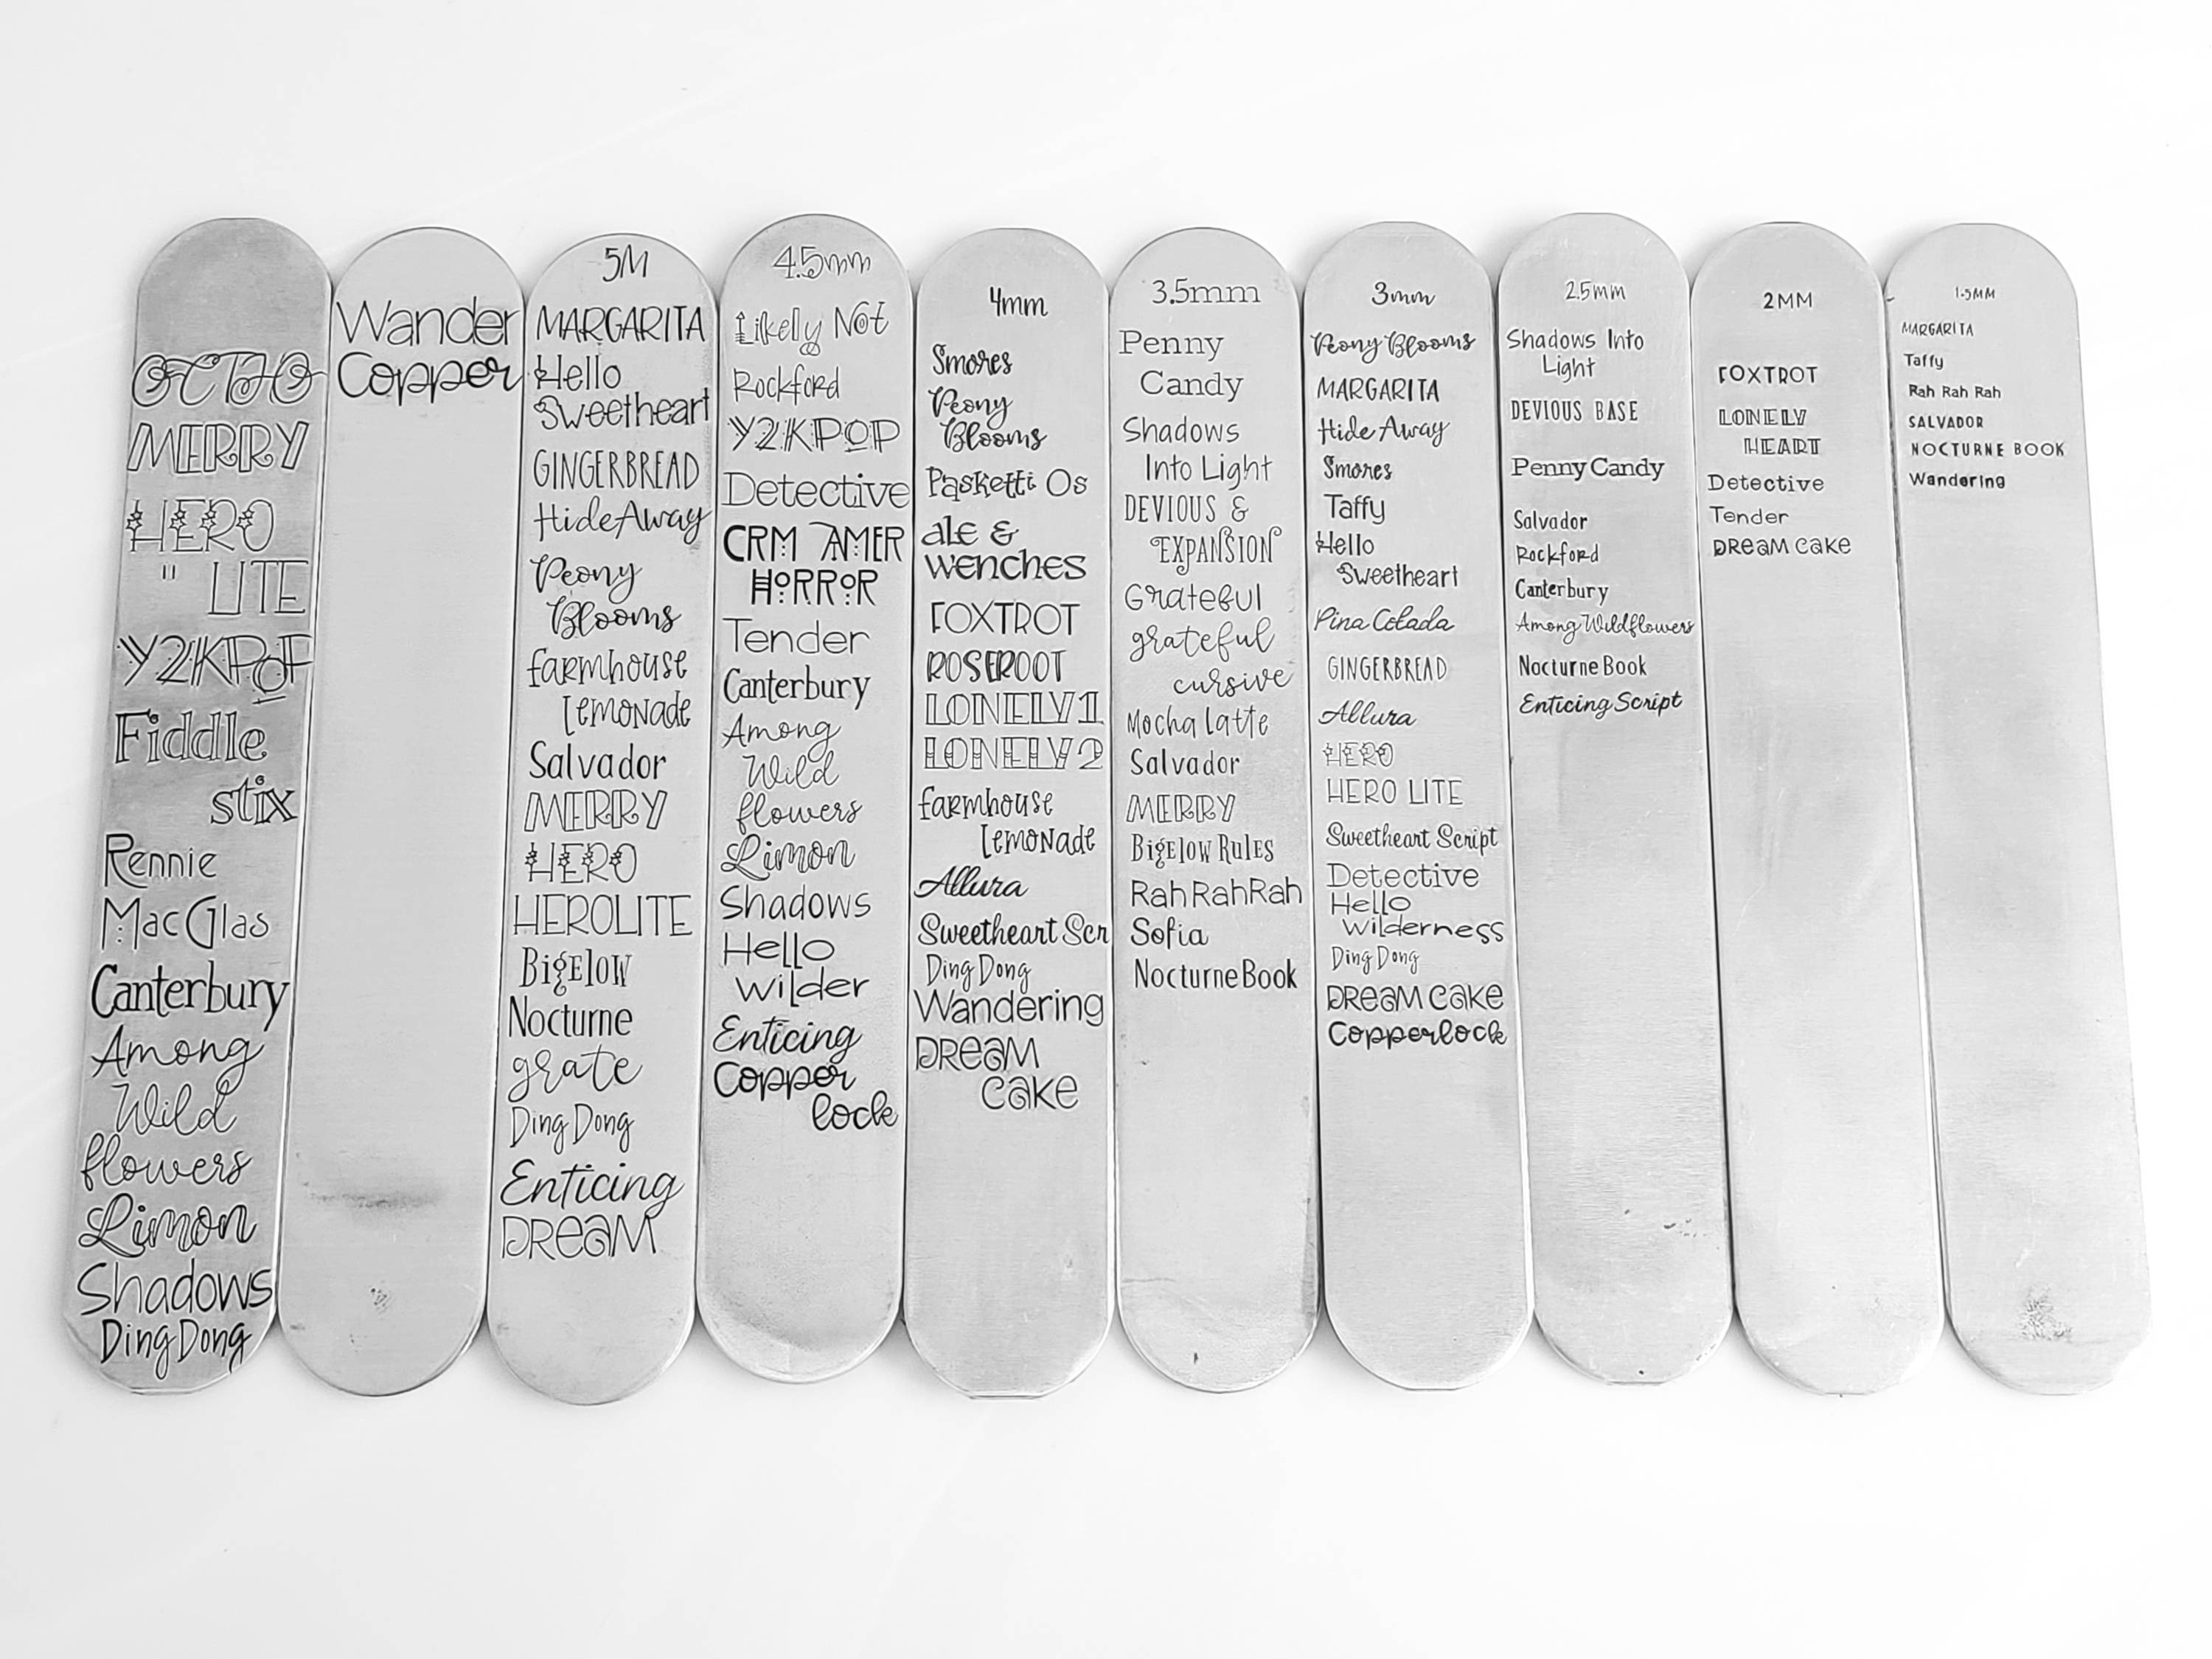 OCTHO
MERRY
HERO
" LITE
Y2KPOP
Fiddle
stix
Rennie
MacGlas
Canterbury
Among
Wild
flowers
Limon
Shadows
Ding Dong
Wander
Copper
5M
MARGARITA
Hello
Sweetheart
GINGERBREAD
Hide Away
Peony
Blooms
farmhouse
Lemonade
Salvador
MERRY
HERO
HEROLITE
Bigelow
Nocturne
grate
Ding Dong
Enticing
DReaM
4.5mm
Likely Not
Rockford
Y2KPOP
Detective
CRM AMER
HORROR
Tender
Canterbury
Among
Wild
flowers
Limon
Shadows
Hello
wilder
Enticing
Copper
lock
4mm
Smores
Peony
Blooms
Pasketti Os
ale &
wenches
FOXTROT
ROSEROOT
LONELY 1
LONELY 2
farmhouse
Lemonade
Allura
Sweetheart Scr
Ding Dong
Wandering
DReaM
cake
3.5mm
Penny
Candy
Shadows
Into Light
DEVIOUS &
EXPANSION
Grateful
grateful
cursive
Mocha latte
Salvador
MERRY
Bigelow Rules
Rah Rah Rah
Sofia
Nocturne Book
3mm
Peony Blooms
MARGARITA
Hide Away
Smores
Taffy
Hello
Sweetheart
Pina Colada
GINGERBREAD
Allura
HERO
HERO LITE
Sweetheart Script
Detective
Hello
wilderness
Ding Dong
DReaM cake
Copperlock
2.5mm
Shadows Into
Light
DEVIOUS BASE
Penny Candy
Salvador
Rockford
Canterbury
Among Wildflowers
Nocturne Book
Enticing Script
2MM
FOXTROT
LONELY
HEART
Detective
Tender
DReaM cake
1.5MM
MARGARITA
Taffy
Rah Rah Rah
SALVADOR
NOCTURNE BOOK
Wandering